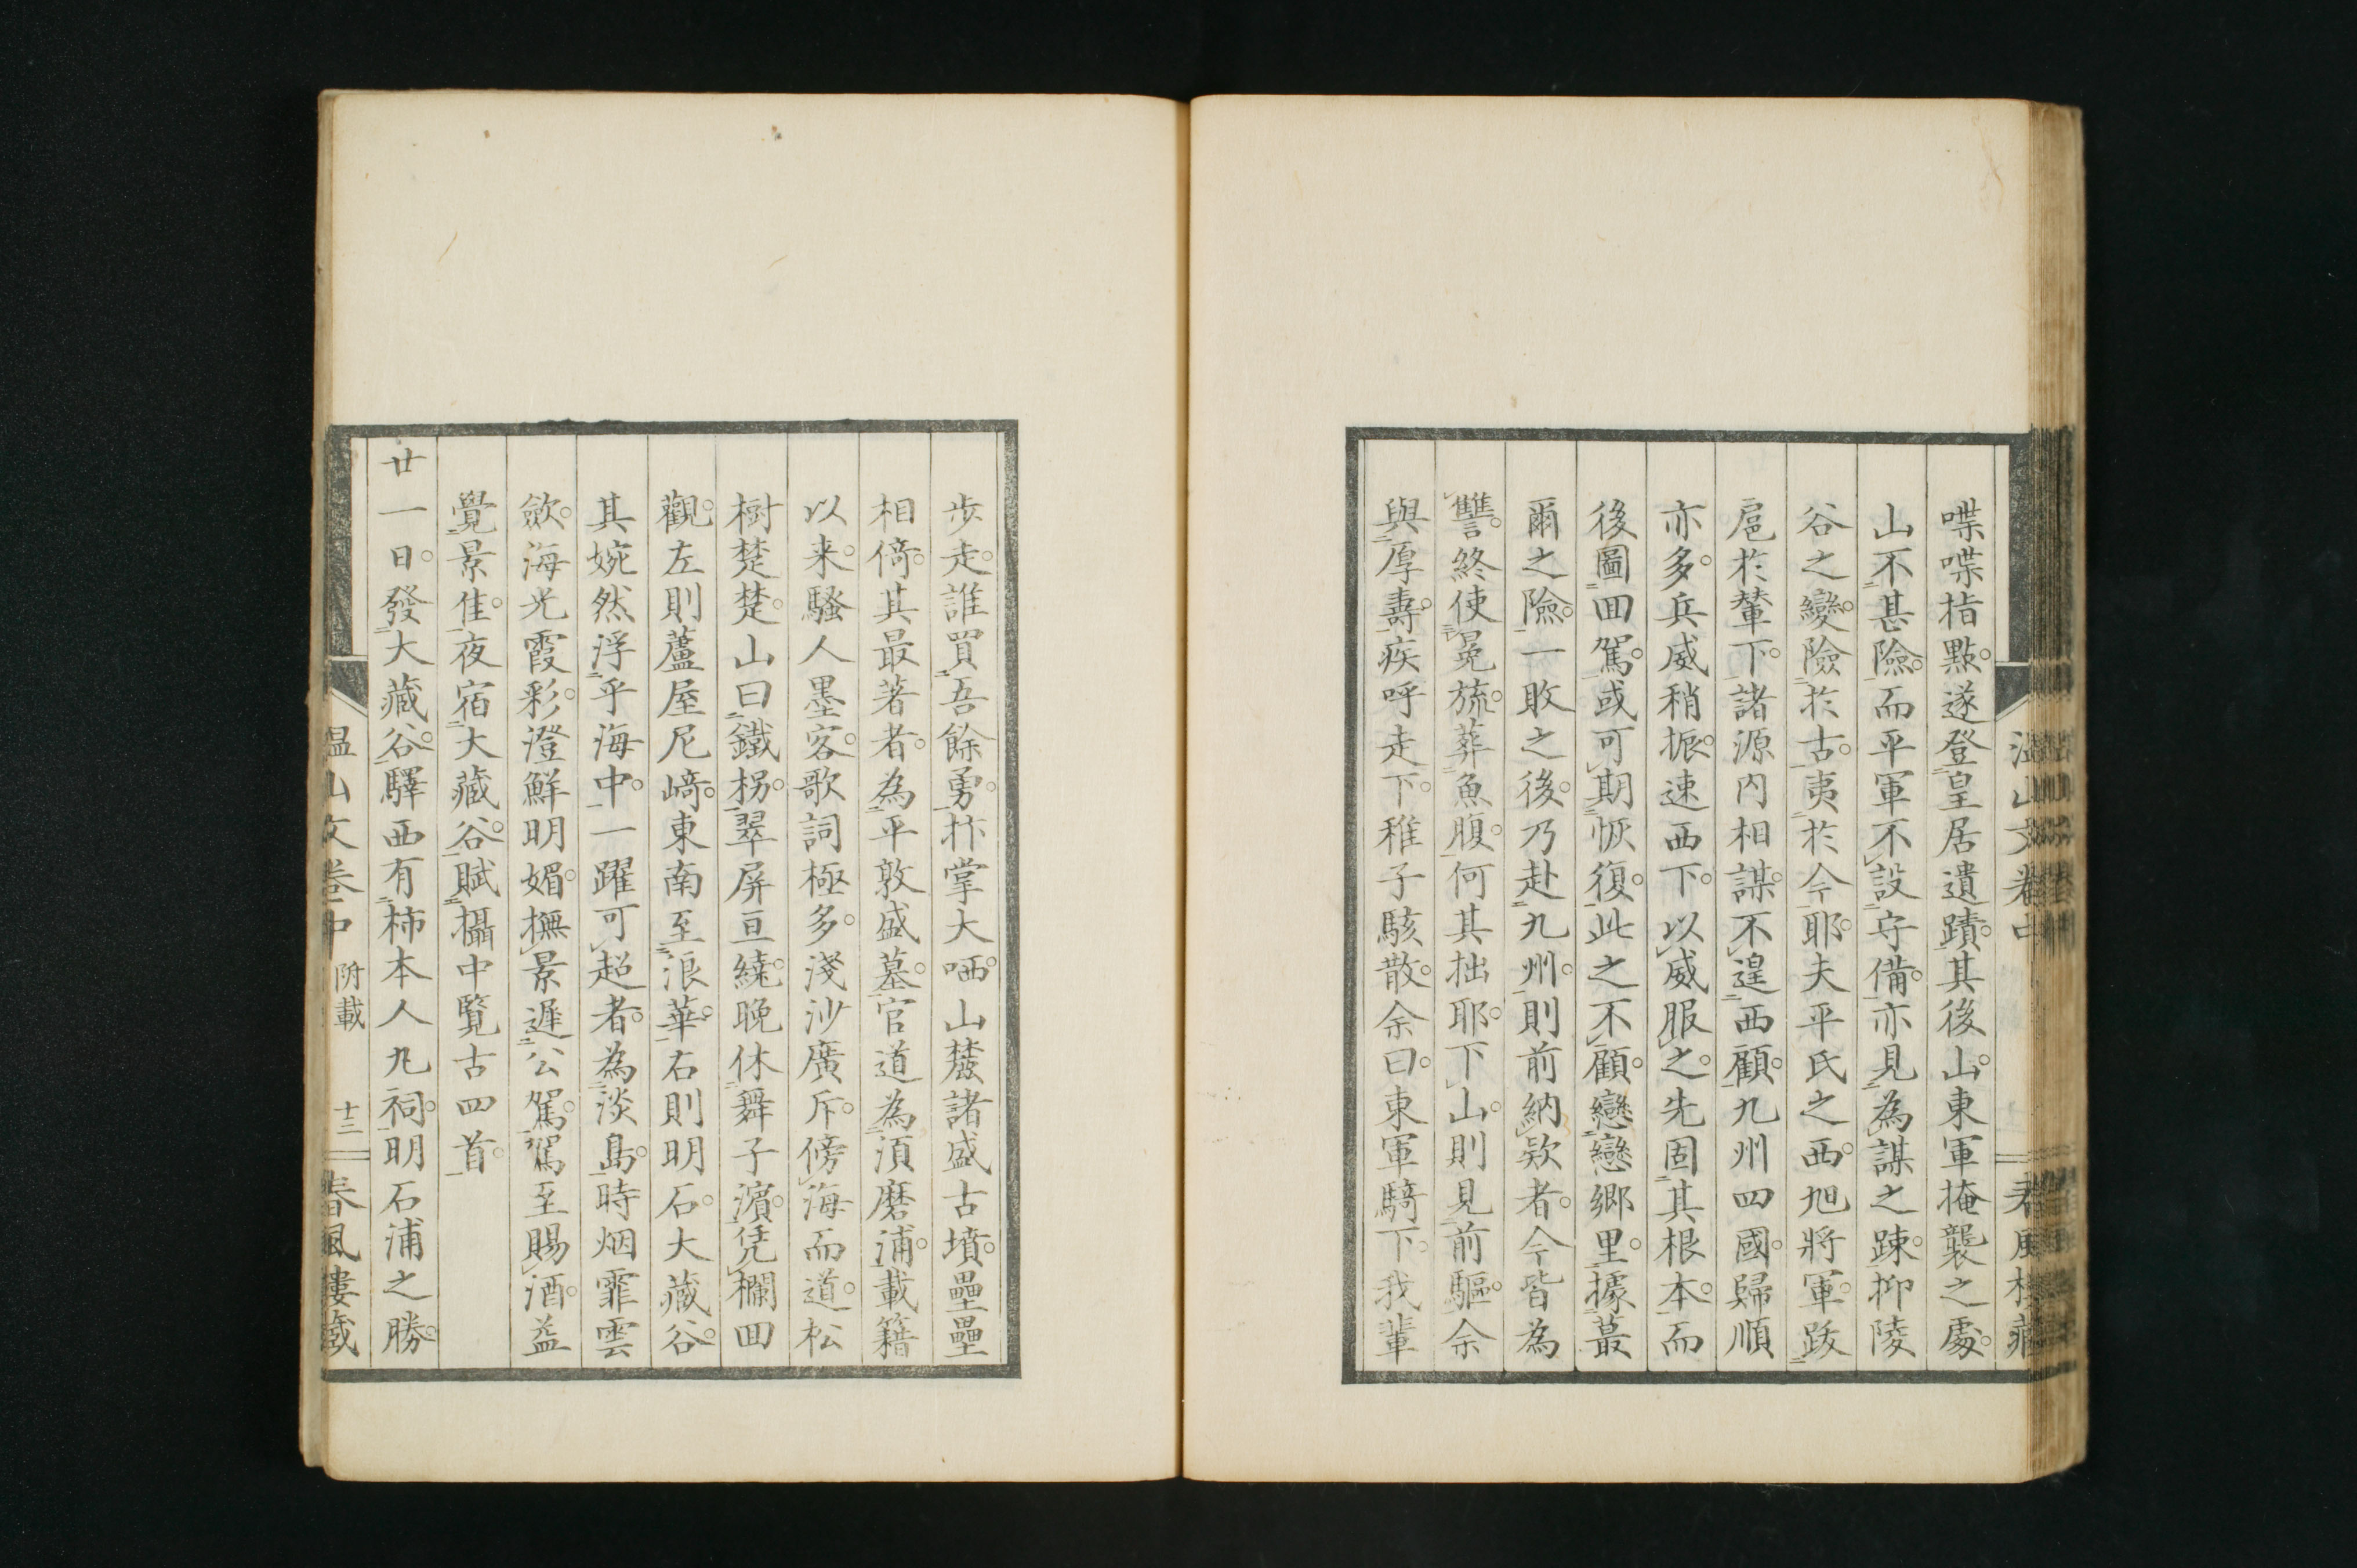 喋喋指點。遂登皇居遺蹟。其後山。東軍掩襲之處。
山不甚險。而平軍不設守備。亦見為謀之踈。抑陵
谷之變。險於古。夷於今耶。夫平氏之西。旭將軍。跋
扈於輦下。諸源内相謀。不遑西顧。九州四國。歸順
亦多。兵威稍振。速西下。以威服之。先固其根本。而
後圖囬駕。或可期恢復。此之不顧。戀戀郷里。據蕞
爾之險。一敗之後。乃赴九州。則前納欵者。今皆為
讐。終使冕旒。葬魚腹。何其拙耶。下山。則見前驅。余
與厚壽。疾呼走下。稚子駭散。余曰。東軍騎下。我輩
歩走。誰買吾餘勇。抃掌大哂。山麓諸盛古墳。壘壘
相倚。其最著者。為平敦盛墓。官道為須磨浦。載籍
以来。騷人墨客。歌詞極多。淺沙廣斥。傍海而道。松
樹楚楚。山曰鐵枴。翠屏亘繞。晚休舞子濵。凭欄囬
觀。左則蘆屋尼﨑。東南至浪華。右則明石大藏谷。
其婉然浮乎海中。一躍可超者。為淡島。時烟霏雲
歛。海光霞彩。澄鮮明媚。撫景遲公駕。駕至賜酒。益
覺景佳。夜宿大藏谷。賦攝中覽古四首。
廿一日。發大藏谷。驛西有柿本人丸祠。明石浦之勝。
温山文卷中 附載 十三 春風樓藏